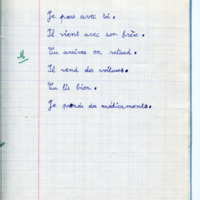 Je pars avec lui.
Il vient avec son frère.
Tu arrives en retard.
Il vend des voitures.
Tu lis bien.
Je prends des médicaments.